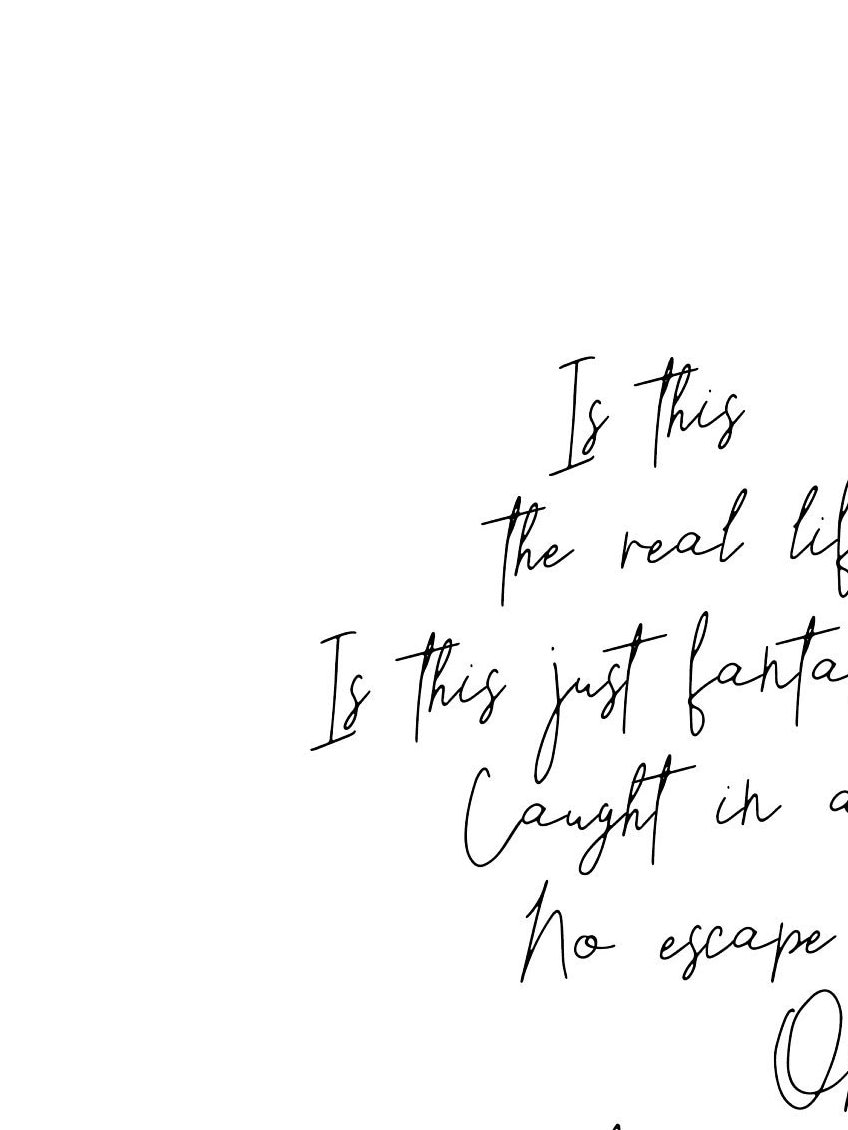 Is this
the real lif
Is this just fanta
Caught in a
No escape
O